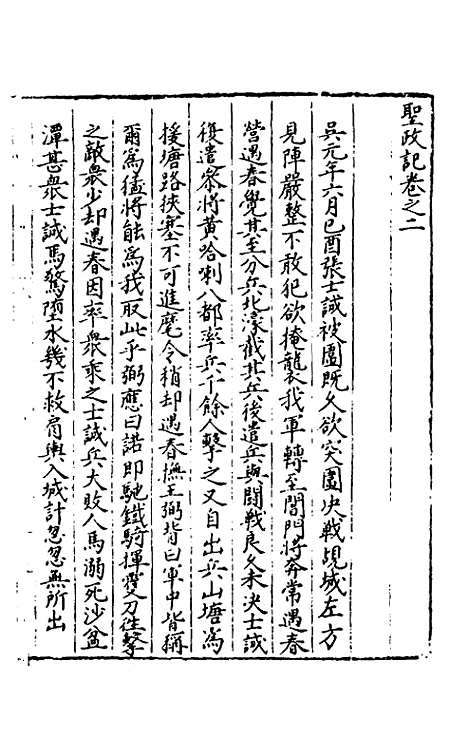 聖政記卷之二
吳元年六月己酉張士誠被圍既久欲突圍决戰覘城左方
見陣嚴整不敢犯欲掩襲我軍轉至閶門將奔常遇春
營遇春覺其至分兵北濠截其兵後遣兵與鬪戰良久未决士誠
復遣叅將黄哈喇八都率兵千餘人擊之又自出兵山塘爲
援塘路狹塞不可進麾令稍却遇春撫王弼背曰軍中皆稱
爾爲猛將能爲我取此乎弼應曰諾即馳鐵騎揮雙刀徃擊
之敵衆少却遇春因率衆乘之士誠兵大敗人馬溺死沙盆
潭甚衆士誠馬驚墮水幾不救肩輿入城計忽忽無所出